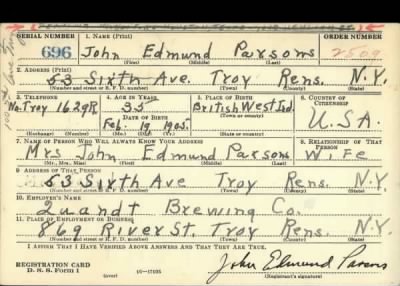 SERIAL NUMBER 1. NAME (Print) ORDER NUMBER
696 John Edmund Parsons 2509
(First) (Middle) (Last)
2. ADDRESS (Print)
53 Sixth Ave. Troy Rens. N.Y.
(Number and street or R. F. D. number) (Town) (County) (State)
3. TELEPHONE 4. AGE IN YEARS 5. PLACE OF BIRTH 6. COUNTRY OF CITIZENSHIP
No. Troy 1629R 35 British West Ind.
DATE OF BIRTH
Feb. 19 1905. U.S.A.
(Exchange) (Number) (Mo.) (Day) (Yr.) (State or country)
7. NAME OF PERSON WHO WILL ALWAYS KNOW YOUR ADDRESS 8. RELATIONSHIP OF THAT PERSON
Mrs John Edmund Parsons Wife
(Mr., Mrs., Miss) (First) (Middle) (Last)
9. ADDRESS OF THAT PERSON
53 Sixth Ave Troy Rens. N.Y.
(Number and street or R. F. D. number) (Town) (County) (State)
10. EMPLOYER'S NAME
Quandt Brewing Co.
11. PLACE OF EMPLOYMENT OR BUSINESS
869 River St. Troy Rens. N.Y.
(Number and street or R. F. D. number) (Town) (County) (State)
I AFFIRM THAT I HAVE VERIFIED ABOVE ANSWERS AND THAT THEY ARE TRUE.
REGISTRATION CARD
D. S. S. Form 1 (over) 16—17105 John Edmund Parsons
(Registrant's signature)